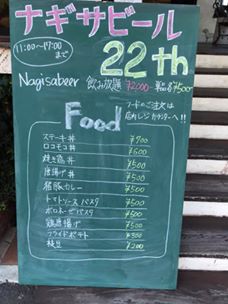 ナギサビール
11:00〜17:00
まで
22th
Nagisabeer 飲み放題 ¥2000 単品 ¥500
Food
フードのご注文は
店内レジカウンターへ!!
ステーキ丼 ¥700
ロコモコ丼 ¥600
焼き鶏丼 ¥500
唐揚げ丼 ¥500
猪豚カレー ¥500
トマトソースパスタ ¥500
ボロネーゼパスタ ¥500
鶏唐揚げ ¥500
フライドポテト ¥300
枝豆 ¥200